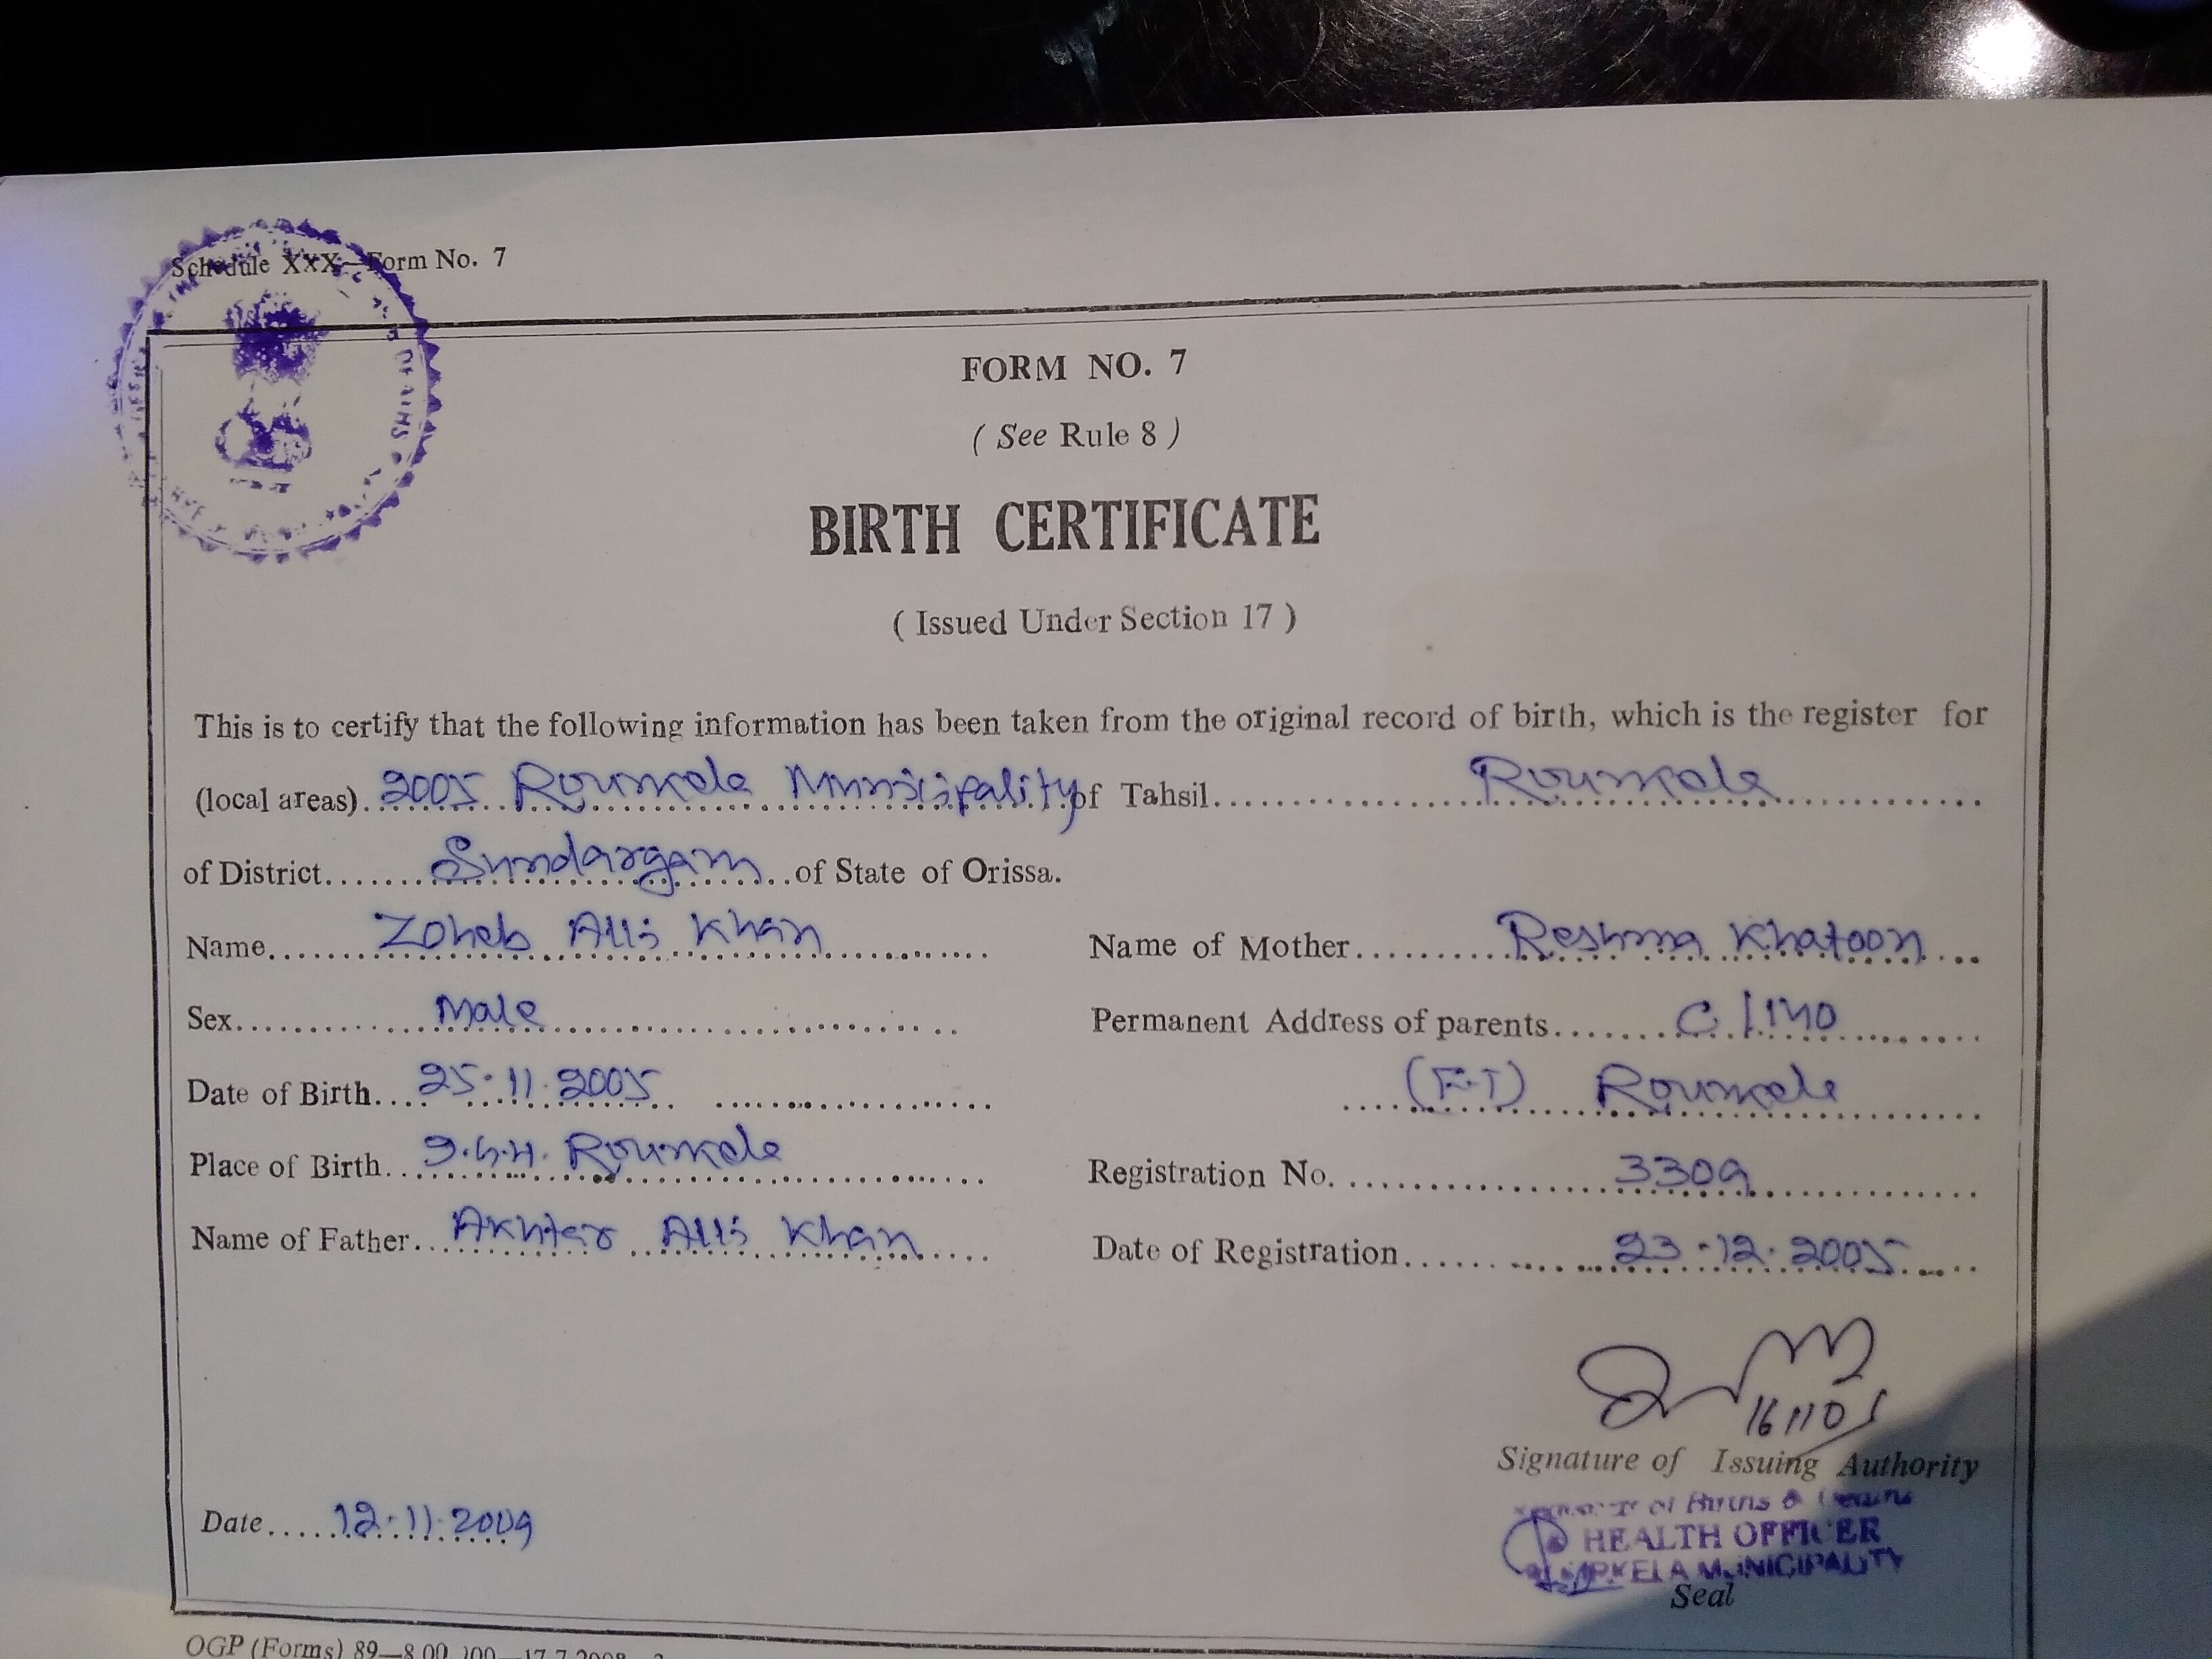 Schedule XXX—Form No. 7
FORM NO. 7
( See Rule 8 )
BIRTH CERTIFICATE
( Issued Under Section 17 )
This is to certify that the following information has been taken from the original record of birth, which is the register for
(local areas) 2005 Rourkela Municipality of Tahsil Rourkela
of District Sundargarh of State of Orissa.
Name Zoheb Alli Khan
Name of Mother Reshma Khatoon
Sex Male
Permanent Address of parents C/140
Date of Birth 25.11.2005
(F.T) Rourkela
Place of Birth Rourkela
Registration No. 3309
Name of Father Akhtar Alli Khan
Date of Registration 23.12.2005
Signature of Issuing Authority
of Births &
Date 12.11.2009
HEALTH OFFICER
MUNICIPALITY
Seal
OGP (Forms) 89